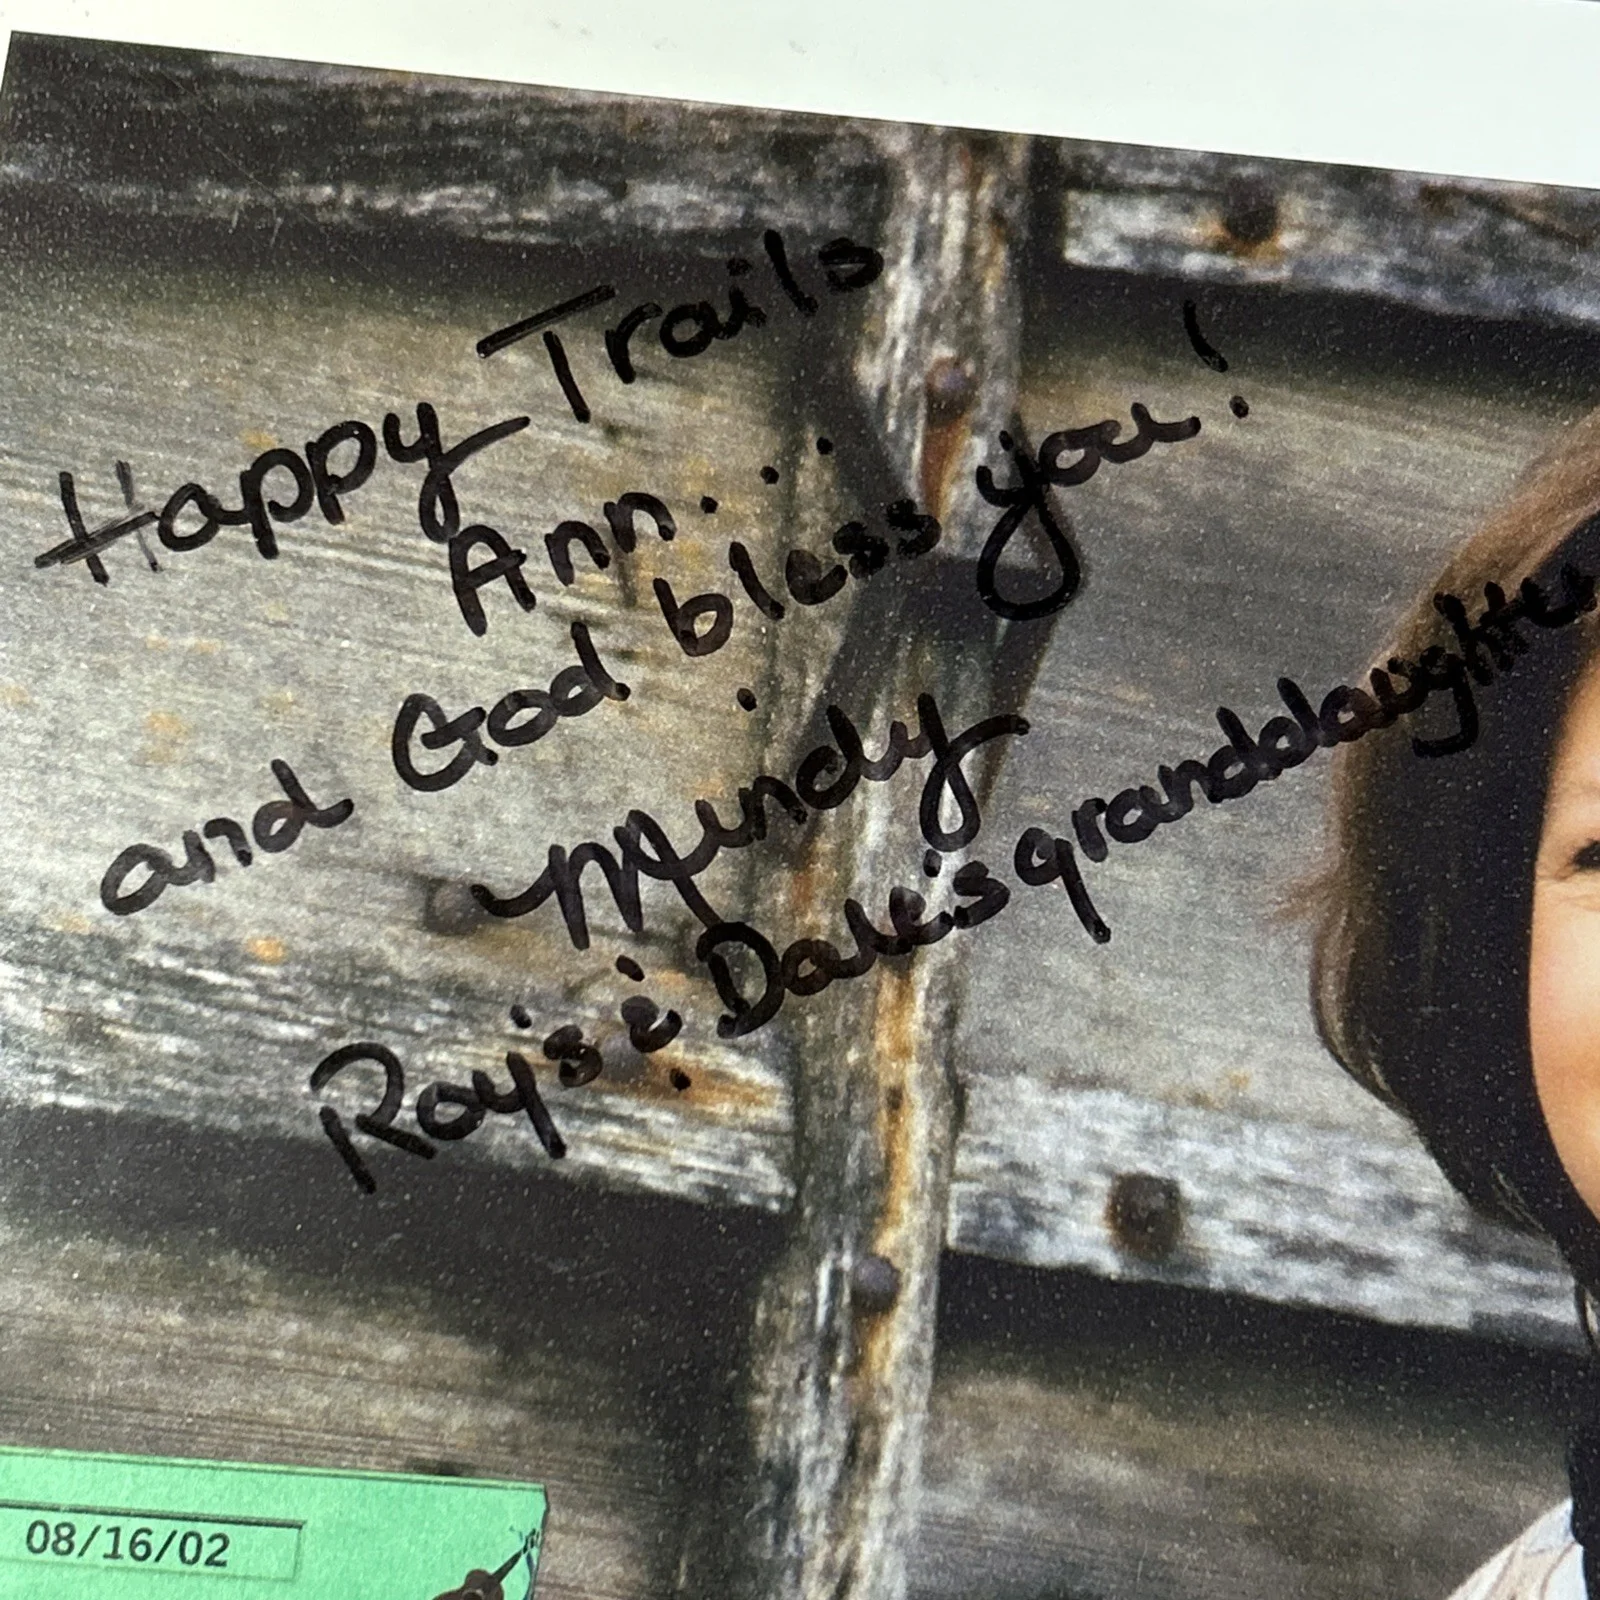 Happy Trails
Ann...
and God bless you!
Mindy
Roy's & Dale's granddaughter
08/16/02